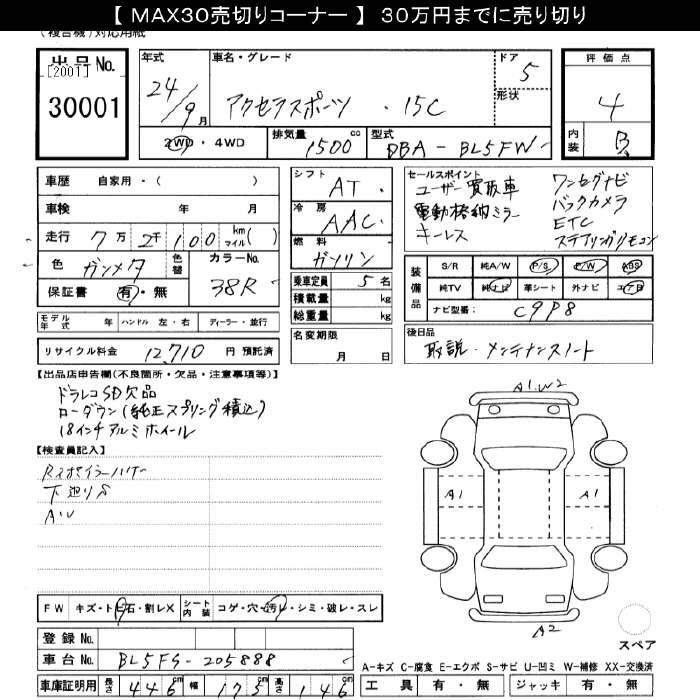 【 MAX30売切りコーナー 】 30万円までに売り切り
(複合機)対応用紙
出品No.
[2001]
30001
年式
24/9月
車名・グレード
アクセラスポーツ ・ 15C
ドア
5
形状
評価点
4
内装
B
2WD・4WD
排気量
1500 cc
型式
DBA - BL5FW
車歴 自家用・( )
車検 年 月
走行 7万 2千 100 km マイル( )
色 ガンメタ 色替 カラーNo. 38R
保証書 有・無
モデル年式 年 ハンドル 左・右 ディーラー・並行
リサイクル料金 12,710 円 預託済
シフト AT
冷房 AAC
燃料 ガソリン
乗車定員 5 名
積載量 kg
総重量 kg
名変期限
月 日
セールスポイント
ユーザー買取車 ワンセグナビ
電動格納ミラー バックカメラ
キーレス ETC
ステアリングリモコン
装備品
S/R 純A/W P/S P/W ABS
純TV 純ナビ 革シート 外ナビ エアB
ナビ型番 C9P8
後日品
取説・メンテナンスノート
【出品店申告欄(不良箇所・欠品・注意事項等)】
ドラレコSD欠品
ローダウン(純正スプリング積込)
18インチアルミホイール
【検査員記入】
下廻りS
FW キズ・ト ビ石・割レX シート内装 コゲ・穴・汚レ・シミ・破レ・スレ
登録No.
車台No. BL5FS-205888
車庫証明用 長さ 446 cm 幅 175 cm 高さ 146 cm
A1.W2
A1
A1
A2
スペア
A-キズ C-腐食 E-エクボ S-サビ U-凹ミ W-補修 XX-交換済
工具 有・無 ジャッキ 有・無